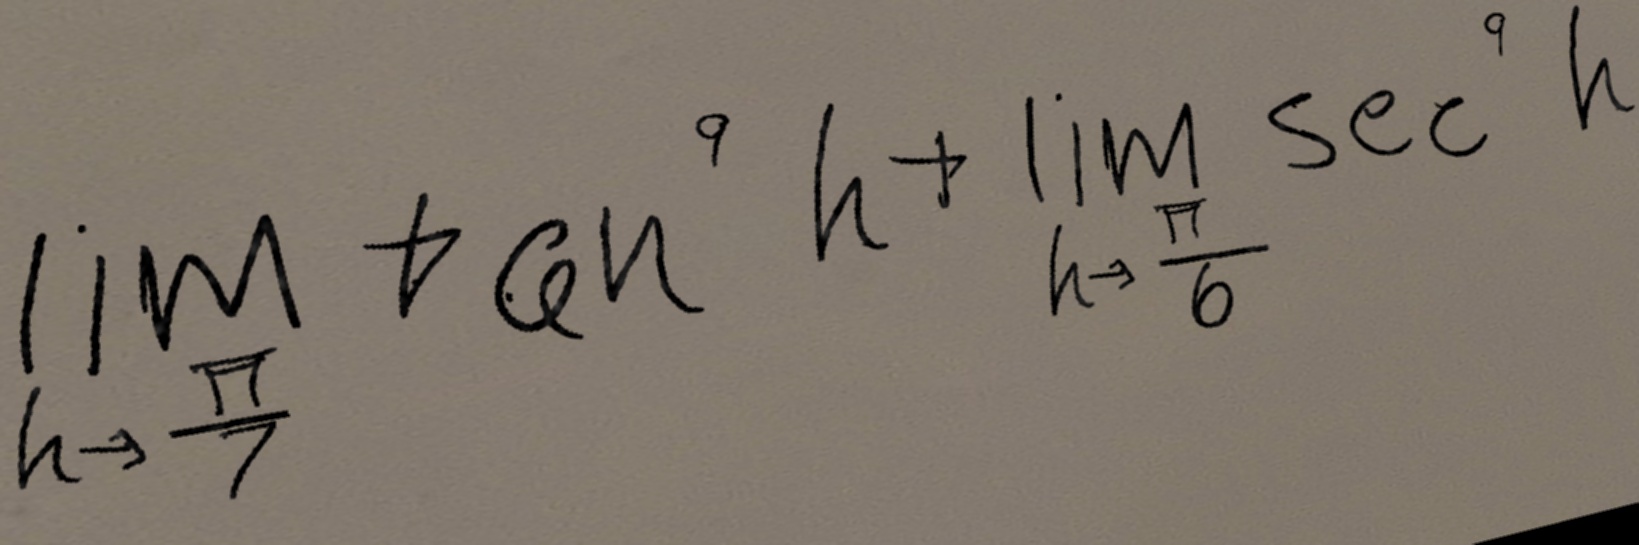 \lim_{h \to \frac{\pi}{7}} \tan^9 h + \lim_{h \to \frac{\pi}{6}} \sec^9 h